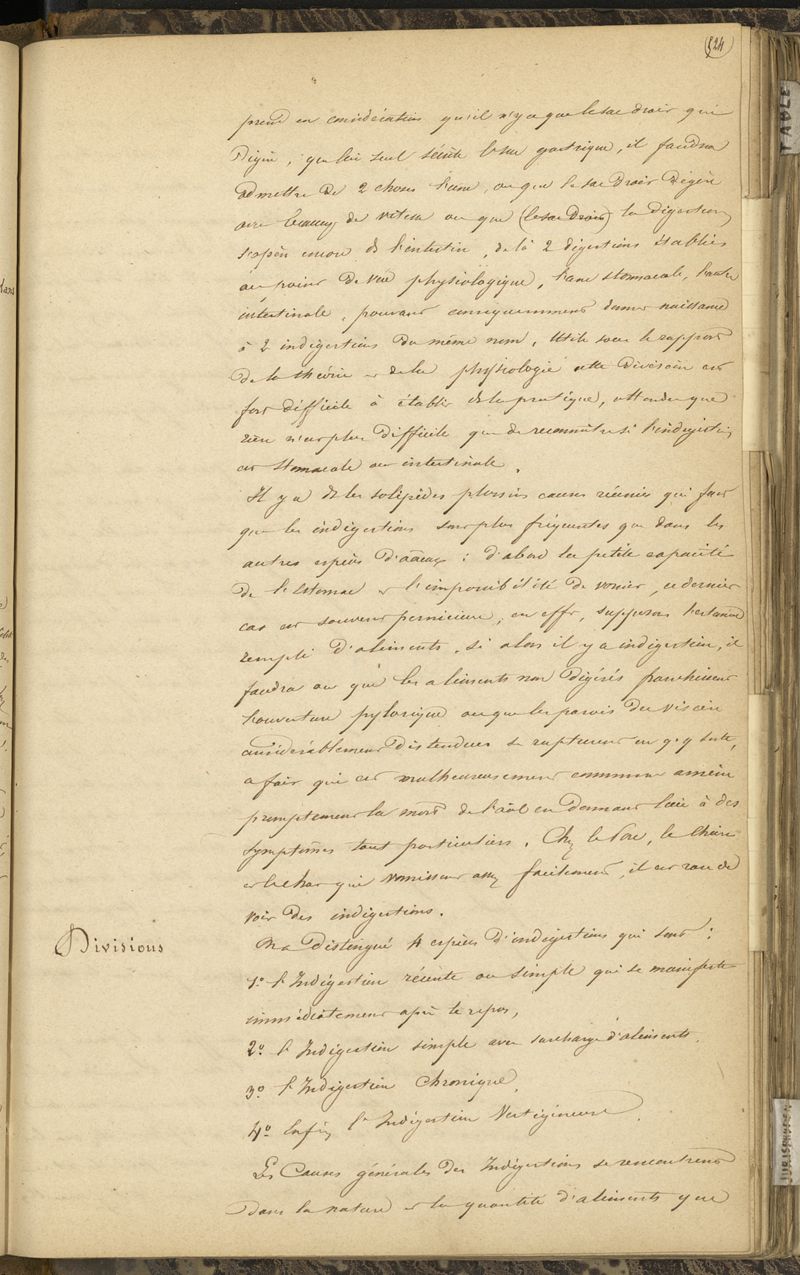 524
prend en considération qu'il n'y a que le sac droit qui
Digère, que lui seul sécrète le suc gastrique, il faudra
admettre de 2 choses l'une, ou que le sac Droit Digère
avec beaucoup de vitesse ou que (le sac Droit) la digestion
s'opère encore ds l'intestin, de là 2 digestions établies
au point de vue physiologique, l'une stomacale, l'autre
intestinale, pouvant conséquemment donner naissance
à 2 indigestions du même nom. Utile sous le rapport
de la théorie et de la physiologie cette Division est
fort difficile à établir ds la pratique, attendu que
rien n'est plus difficile que de reconnaître si l'indigestion
est stomacale ou intestinale.
Il y a ds les solipèdes plusieurs causes réunies qui font
que les indigestions sont plus fréquentes que dans les
autres espèces d'aāux : d'abord la petite capacité
de l'Estomac et l'impossibilité de vomir, ce dernier
cas est souvent pernicieux, en effet, supposons l'estomac
rempli d'aliments, si alors il y a indigestion, il
faudra ou que les aliments non digérés franchissent
l'ouverture pylorique ou que les parois du viscère
considérablement distendues se rupturent en qq sorte,
ce fait qui est malheureusement commun amène
promptement la mort de l'aāl en donnant lieu à des
symptômes tout particuliers. Chez le Porc, le Chien
et le chat qui vomissent assez facilement, il est rare de
voir des indigestions.
Divisions
On a Distingué 4 espèces d'indigestions qui sont :
1º l'Indigestion récente ou simple qui se manifeste
immédiatement après le repas,
2º l'Indigestion simple avec surcharge d'aliments.
3º l'Indigestion Chronique.
4º Enfin l'Indigestion Vertigineuse.
Les Causes générales des Indigestions se rencontrent
dans la nature et la quantité d'aliments que
TABLE
JURISPRUDEN